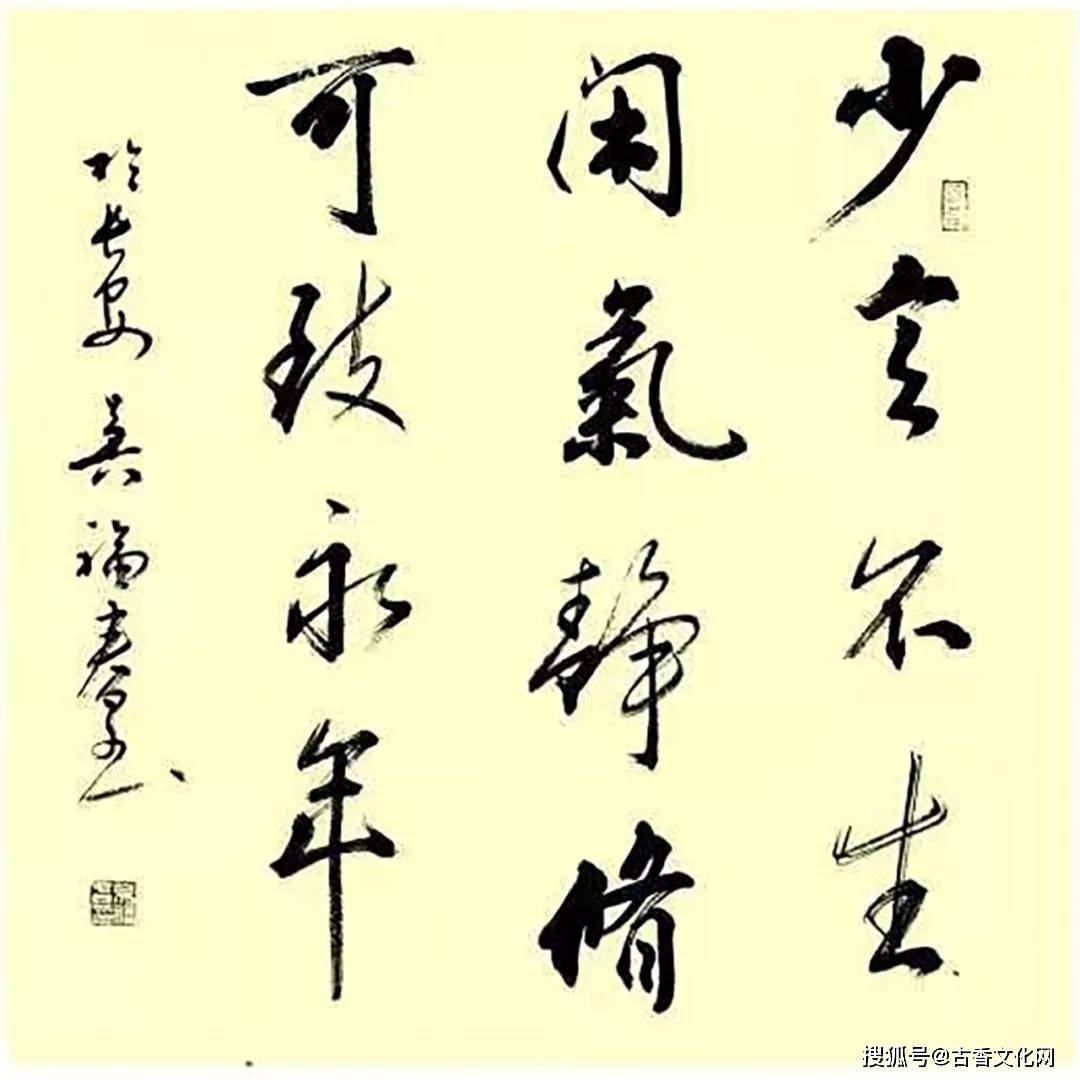 少言不生
闲氣静脩
可致永年
於長安 福春
搜狐号@古香文化网